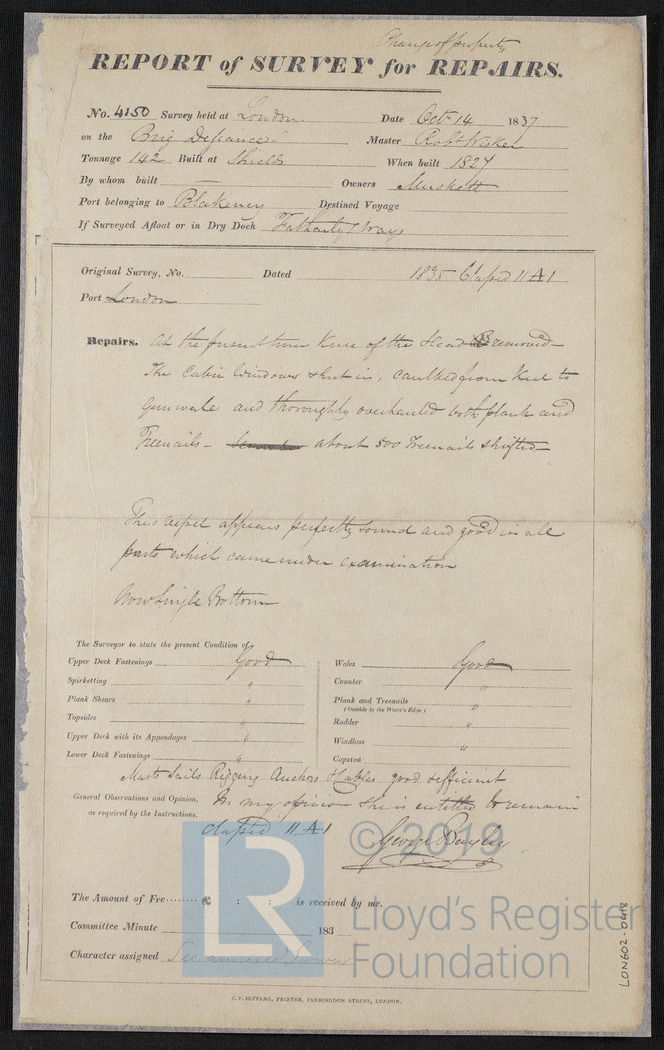 Change of property
REPORT of SURVEY for REPAIRS.
No. 4150 Survey held at London Date Oct 14 1837
on the Brig Defiance Master Robt Waker
Tonnage 142 Built at Shields When built 1827
By whom built — Owners Muskett
Port belonging to Blakeney Destined Voyage
If Surveyed Afloat or in Dry Dock
Original Survey, No. Dated 1835 Classed 11 A1
Port London
Repairs. At the present time Knee of the Head removed
The Cabin Windows shut in, caulked from Keel to
Gunwale and thoroughly overhauled both plank and
Treenails – about 500 Treenails shifted
This vessel appears perfectly sound and good in all
parts which came under examination
Now Single Bottom
The Surveyor to state the present Condition of
Upper Deck Fastenings Good
Spirketting "
Plank Shears "
Topsides "
Upper Deck with its Appendages "
Lower Deck Fastenings "
Wales Good
Counter "
Plank and Treenails "
(Outside to the Water's Edge)
Rudder "
Windlass "
Capstan
Masts Sails Rigging Anchors & Cables good sufficient
General Observations and Opinion, In my opinion she is entitled to remain
as required by the Instructions.
classed 11 A1
George Bayley
The Amount of Fee ........ £ : : is received by me.
Committee Minute 183
Character assigned See annexed Survey
C. F. SEYFANG, PRINTER, FARRINGDON STREET, LONDON.
LON602-0418
© 2019
LR
Lloyd's Register
Foundation